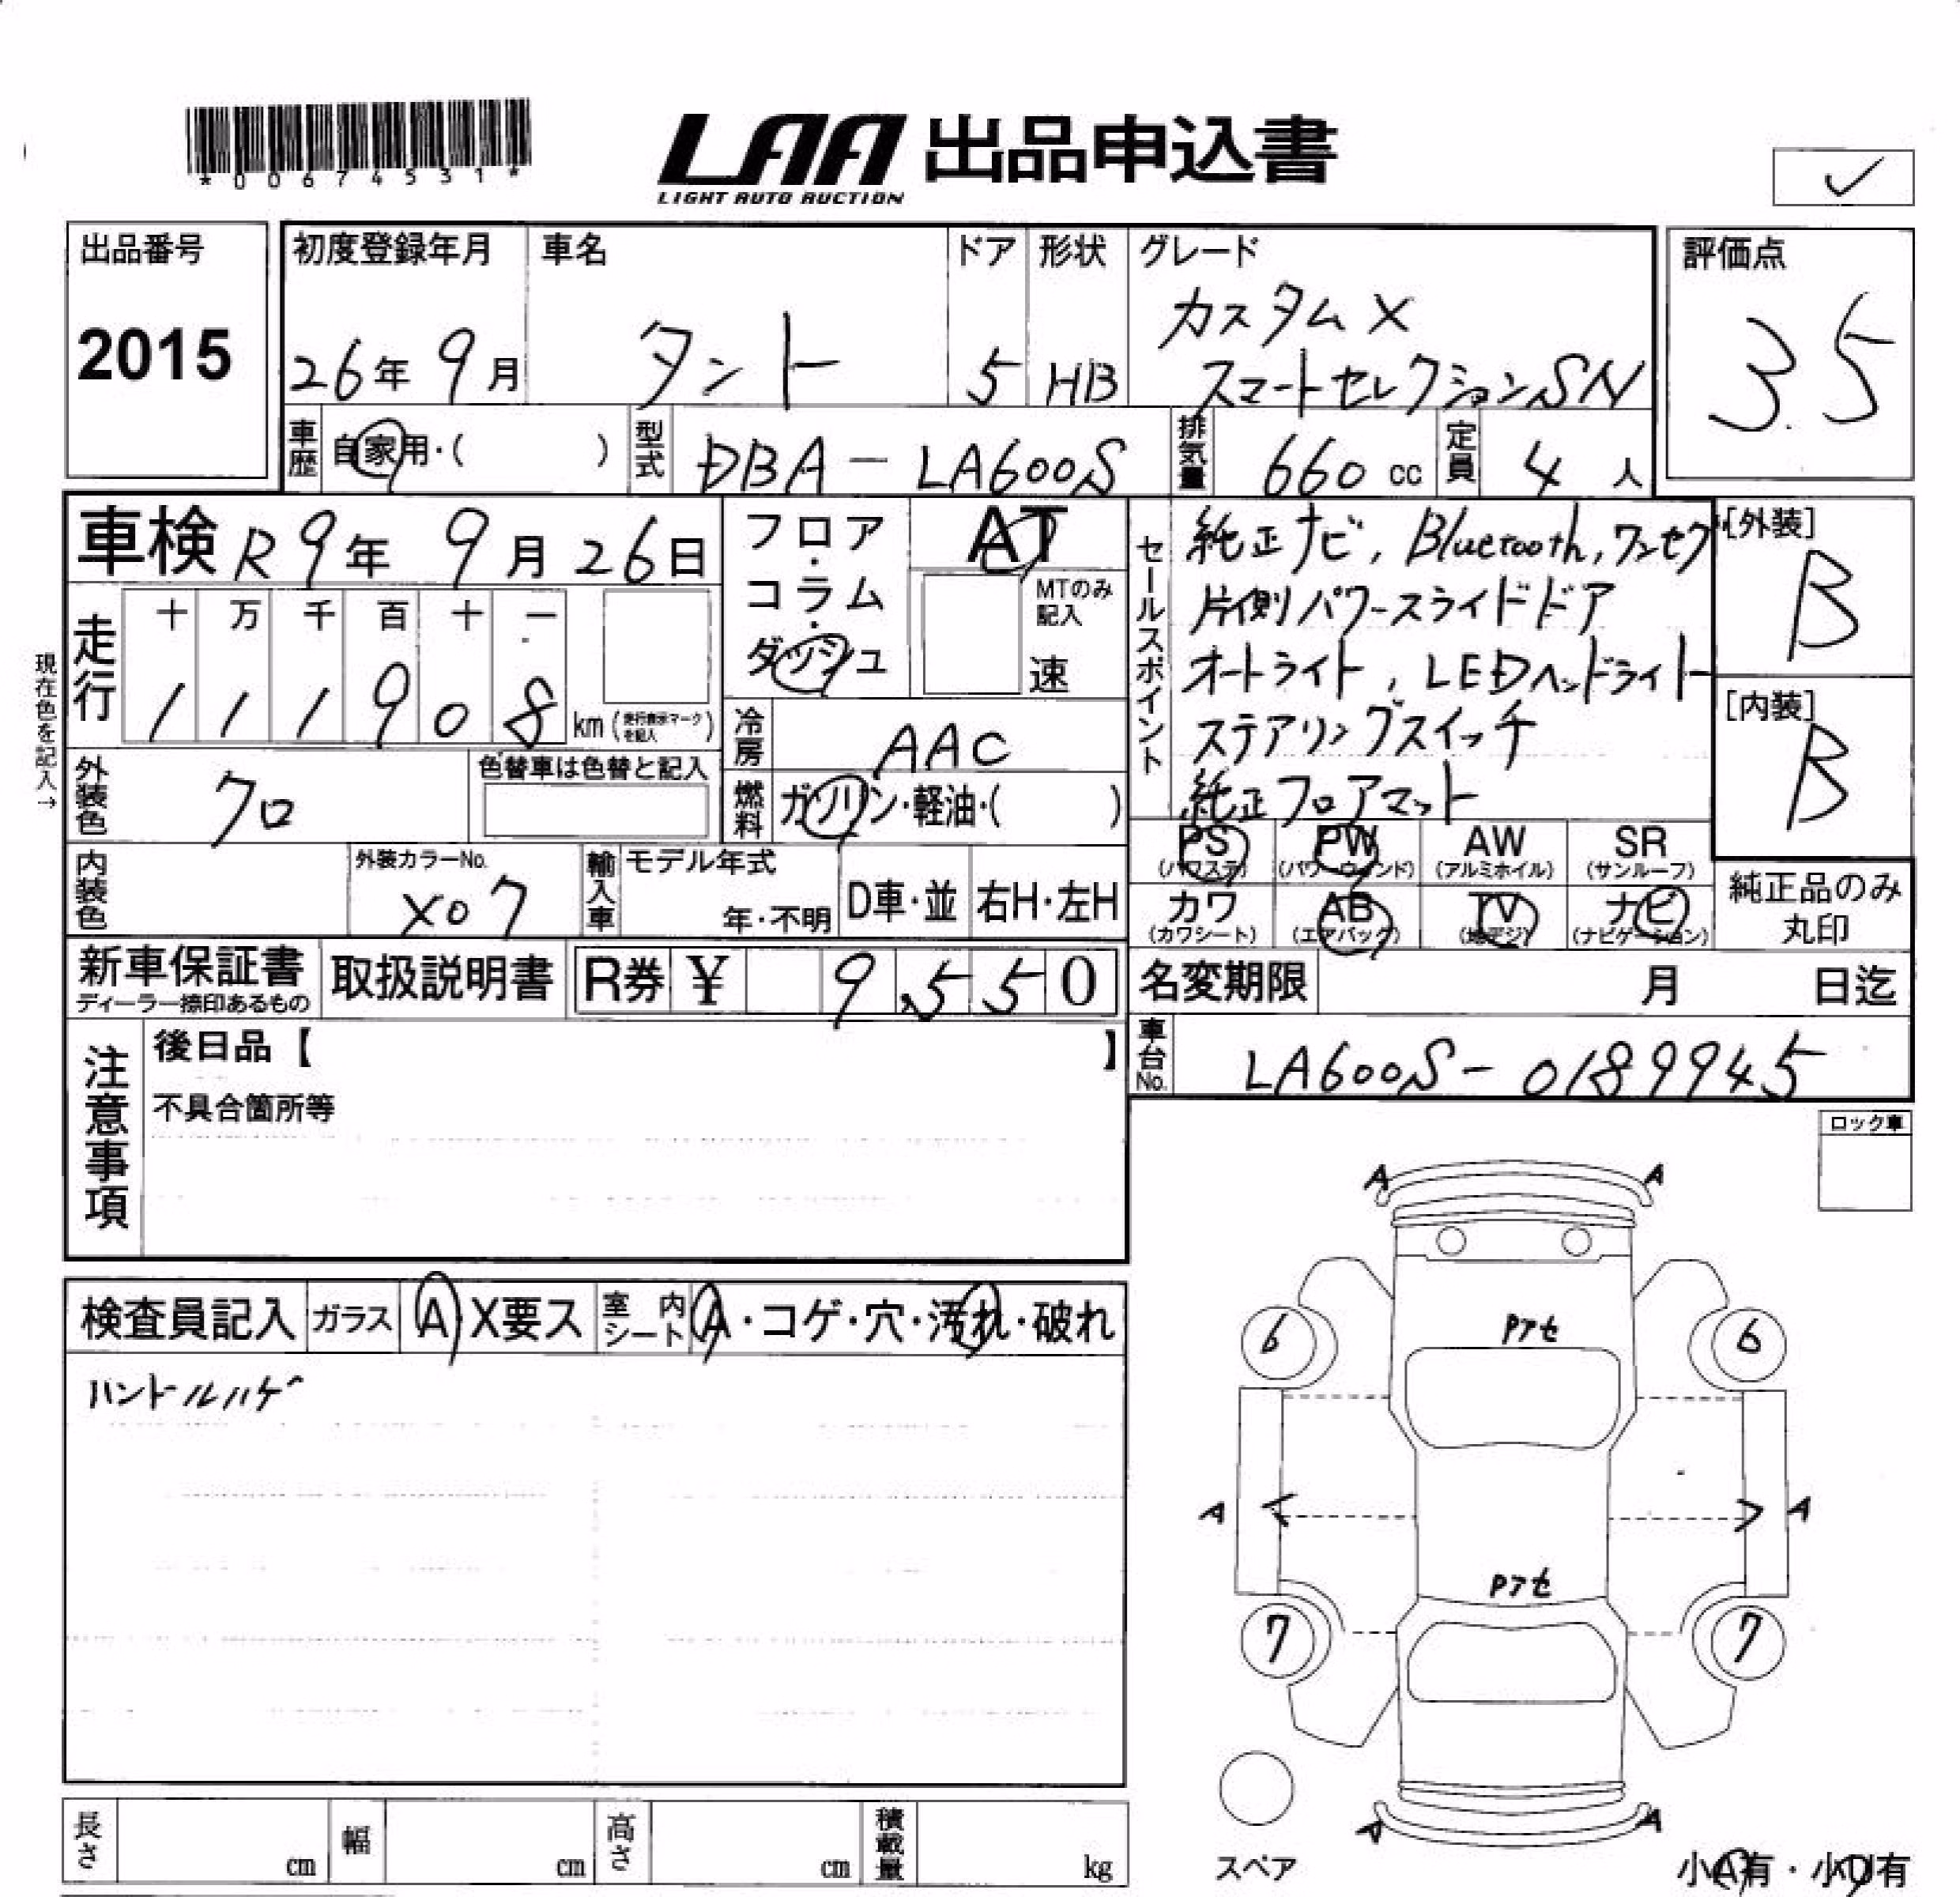 *00674531*
LAA 出品申込書
LIGHT AUTO AUCTION
✓
出品番号
2015
初度登録年月
26年 9月
車名
タント
ドア
5
形状
HB
グレード
カスタム X
スマートセレクションSN
評価点
3.5
車歴
自家用・( )
型式
DBA-LA600S
排気量
660 cc
定員
4 人
車検 R 9年 9月 26日
フロア・コラム・ダッシュ
AT
MTのみ記入
速
セールスポイント
純正ナビ, Bluetooth, ワンセグ
片側パワースライドドア
オートライト, LEDヘッドライト
ステアリングスイッチ
純正フロアマット
[外装]
B
[内装]
B
現在色を記入→
走行
十 万 千 百 十 一
1 1 1 9 0 8 km (走行表示マークを記入)
冷房
AAC
外装色
クロ
色替車は色替と記入
燃料
ガソリン・軽油・( )
PS
(パワステ)
PW
(パワーウィンド)
AW
(アルミホイル)
SR
(サンルーフ)
カワ
(カワシート)
AB
(エアバック)
TV
(地デジ)
ナビ
(ナビゲーション)
純正品のみ
丸印
内装色
外装カラーNo.
X07
輸入車
モデル年式
年・不明
D車・並
右H・左H
新車保証書
ディーラー捺印あるもの
取扱説明書
R券 ¥ 9,550
名変期限 月 日迄
注意事項
後日品【 】
不具合箇所等
車台No.
LA600S-0189945
ロック車
検査員記入
ガラス
A X要ス
室内シート
A・コゲ・穴・汚れ・破れ
ハンドルハゲ
A A
6 Pアセ 6
A < > A
Pアセ
7 7
A A
スペア
小A有・小U有
長さ cm
幅 cm
高さ cm
積載量 kg